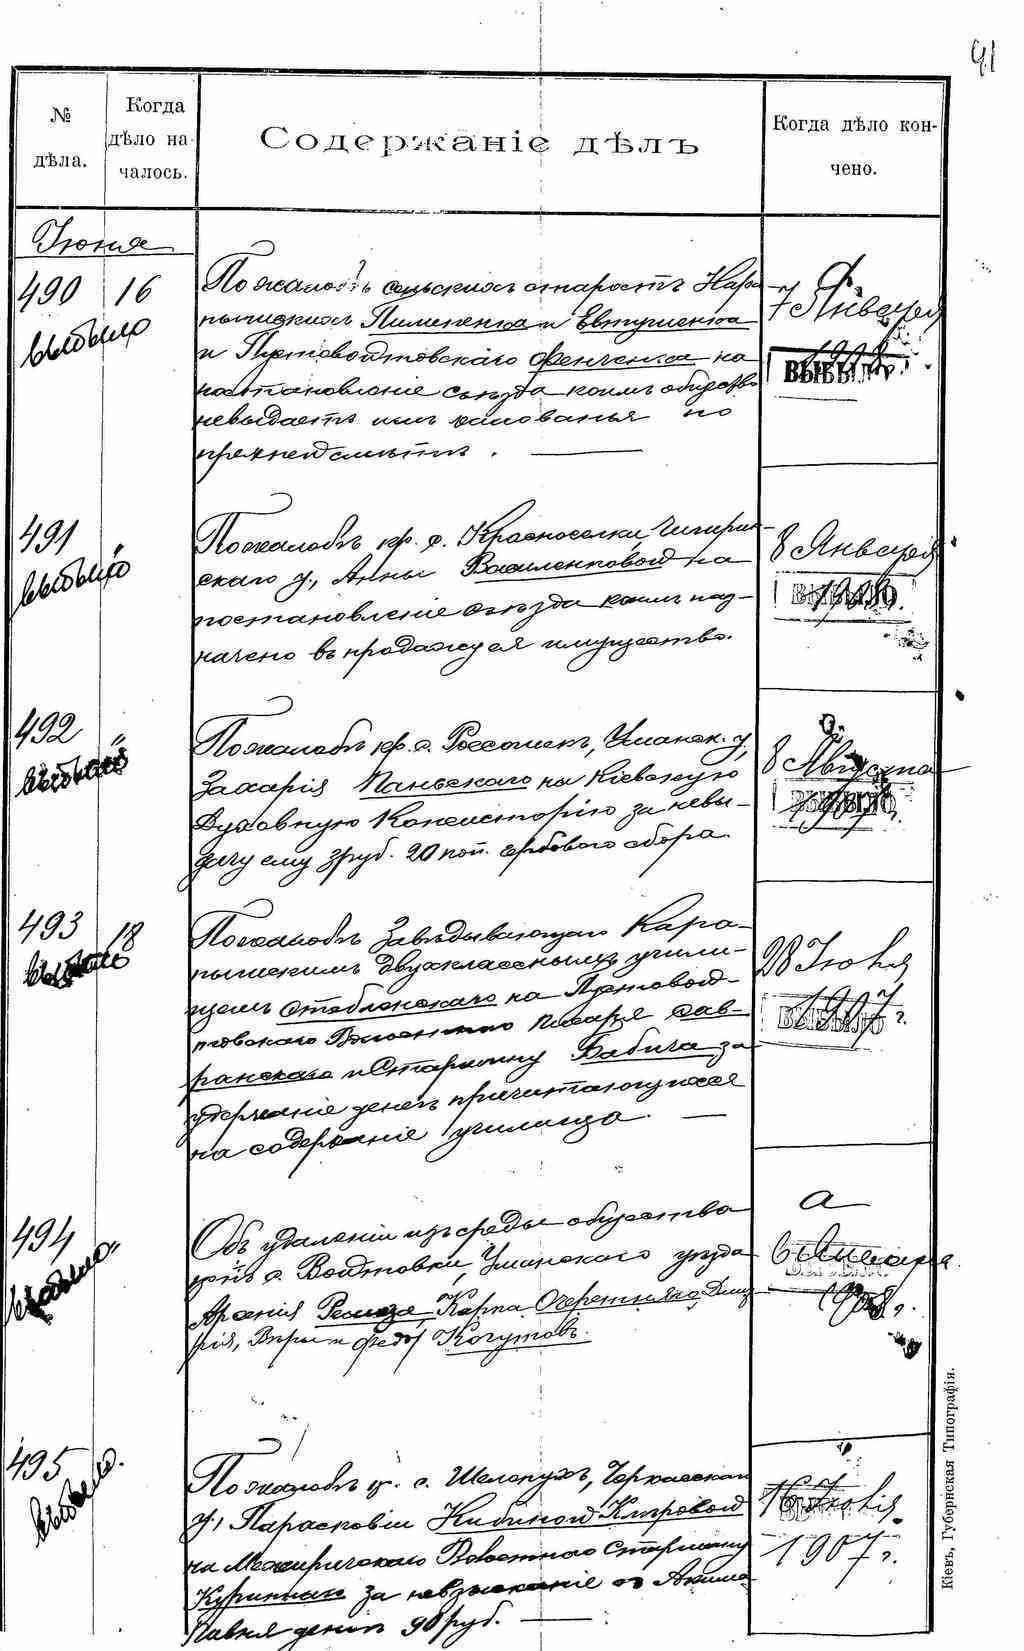 91
№ дѣла.
Когда
дѣло на-
чалось.
Содержаніе дѣлъ
Когда дѣло кон-
чено.
Іюня
490 16
выбыло
По жалобѣ сельскихъ старостъ Кара-
пышскихъ Пилипенка и Евтушенка
и Пустовойтовскаго Фенченка на
постановленіе съѣзда коимъ общество
невыдаетъ имъ жалованья по
прежней смѣтѣ.
7 Января
1908
ВЫБЫЛО
491 "
выбыло
По жалобѣ кр. с. Красноселки, Чигирин-
скаго у., Анны Василенковой на
постановленіе съѣзда коимъ наз-
начено въ продажу ея имущество.
8 Января
1908.
ВЫБЫЛО
492 "
выбыло
По жалобѣ кр. с. Россошекъ, Уманск. у.,
Захарія Паньскаго на Кіевскую
Духовную Консисторію за невы-
дачу ему 3 руб. 20 коп. гербового сбора.
8 Августа
1907 г.
ВЫБЫЛО
493 18
выбыло
По жалобѣ Завѣдывающаго Кара-
пышскимъ двухкласснымъ учили-
щемъ на Пустовой-
товскаго Волостного писаря Сав-
ранскаго и Старшину Бабича за
удержаніе денегъ причитающихся
на содержаніе училища.
28 Іюня
1907 г.
ВЫБЫЛО
494 "
выбыло
Объ удаленіи изъ среды общества
кр-нъ с. Войтовки, Уманскаго уѣзда
Арсенія Карпа Очеретняго, Дмит-
рія, Вѣры и Федора Когутовъ.
а
6 Января
1908 г.
495
выбыло.
По жалобѣ кр. с. Шелепухъ, Черкасскаго
у., Парасковіи
на Межиричскаго Волостного Старшину
за невзысканіе съ Акима
денегъ 90 руб.
16 Іюня
1907 г.
Кіевъ, Губернская Типографія.